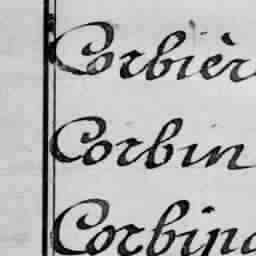 Corbièr
Corbin
Corbina